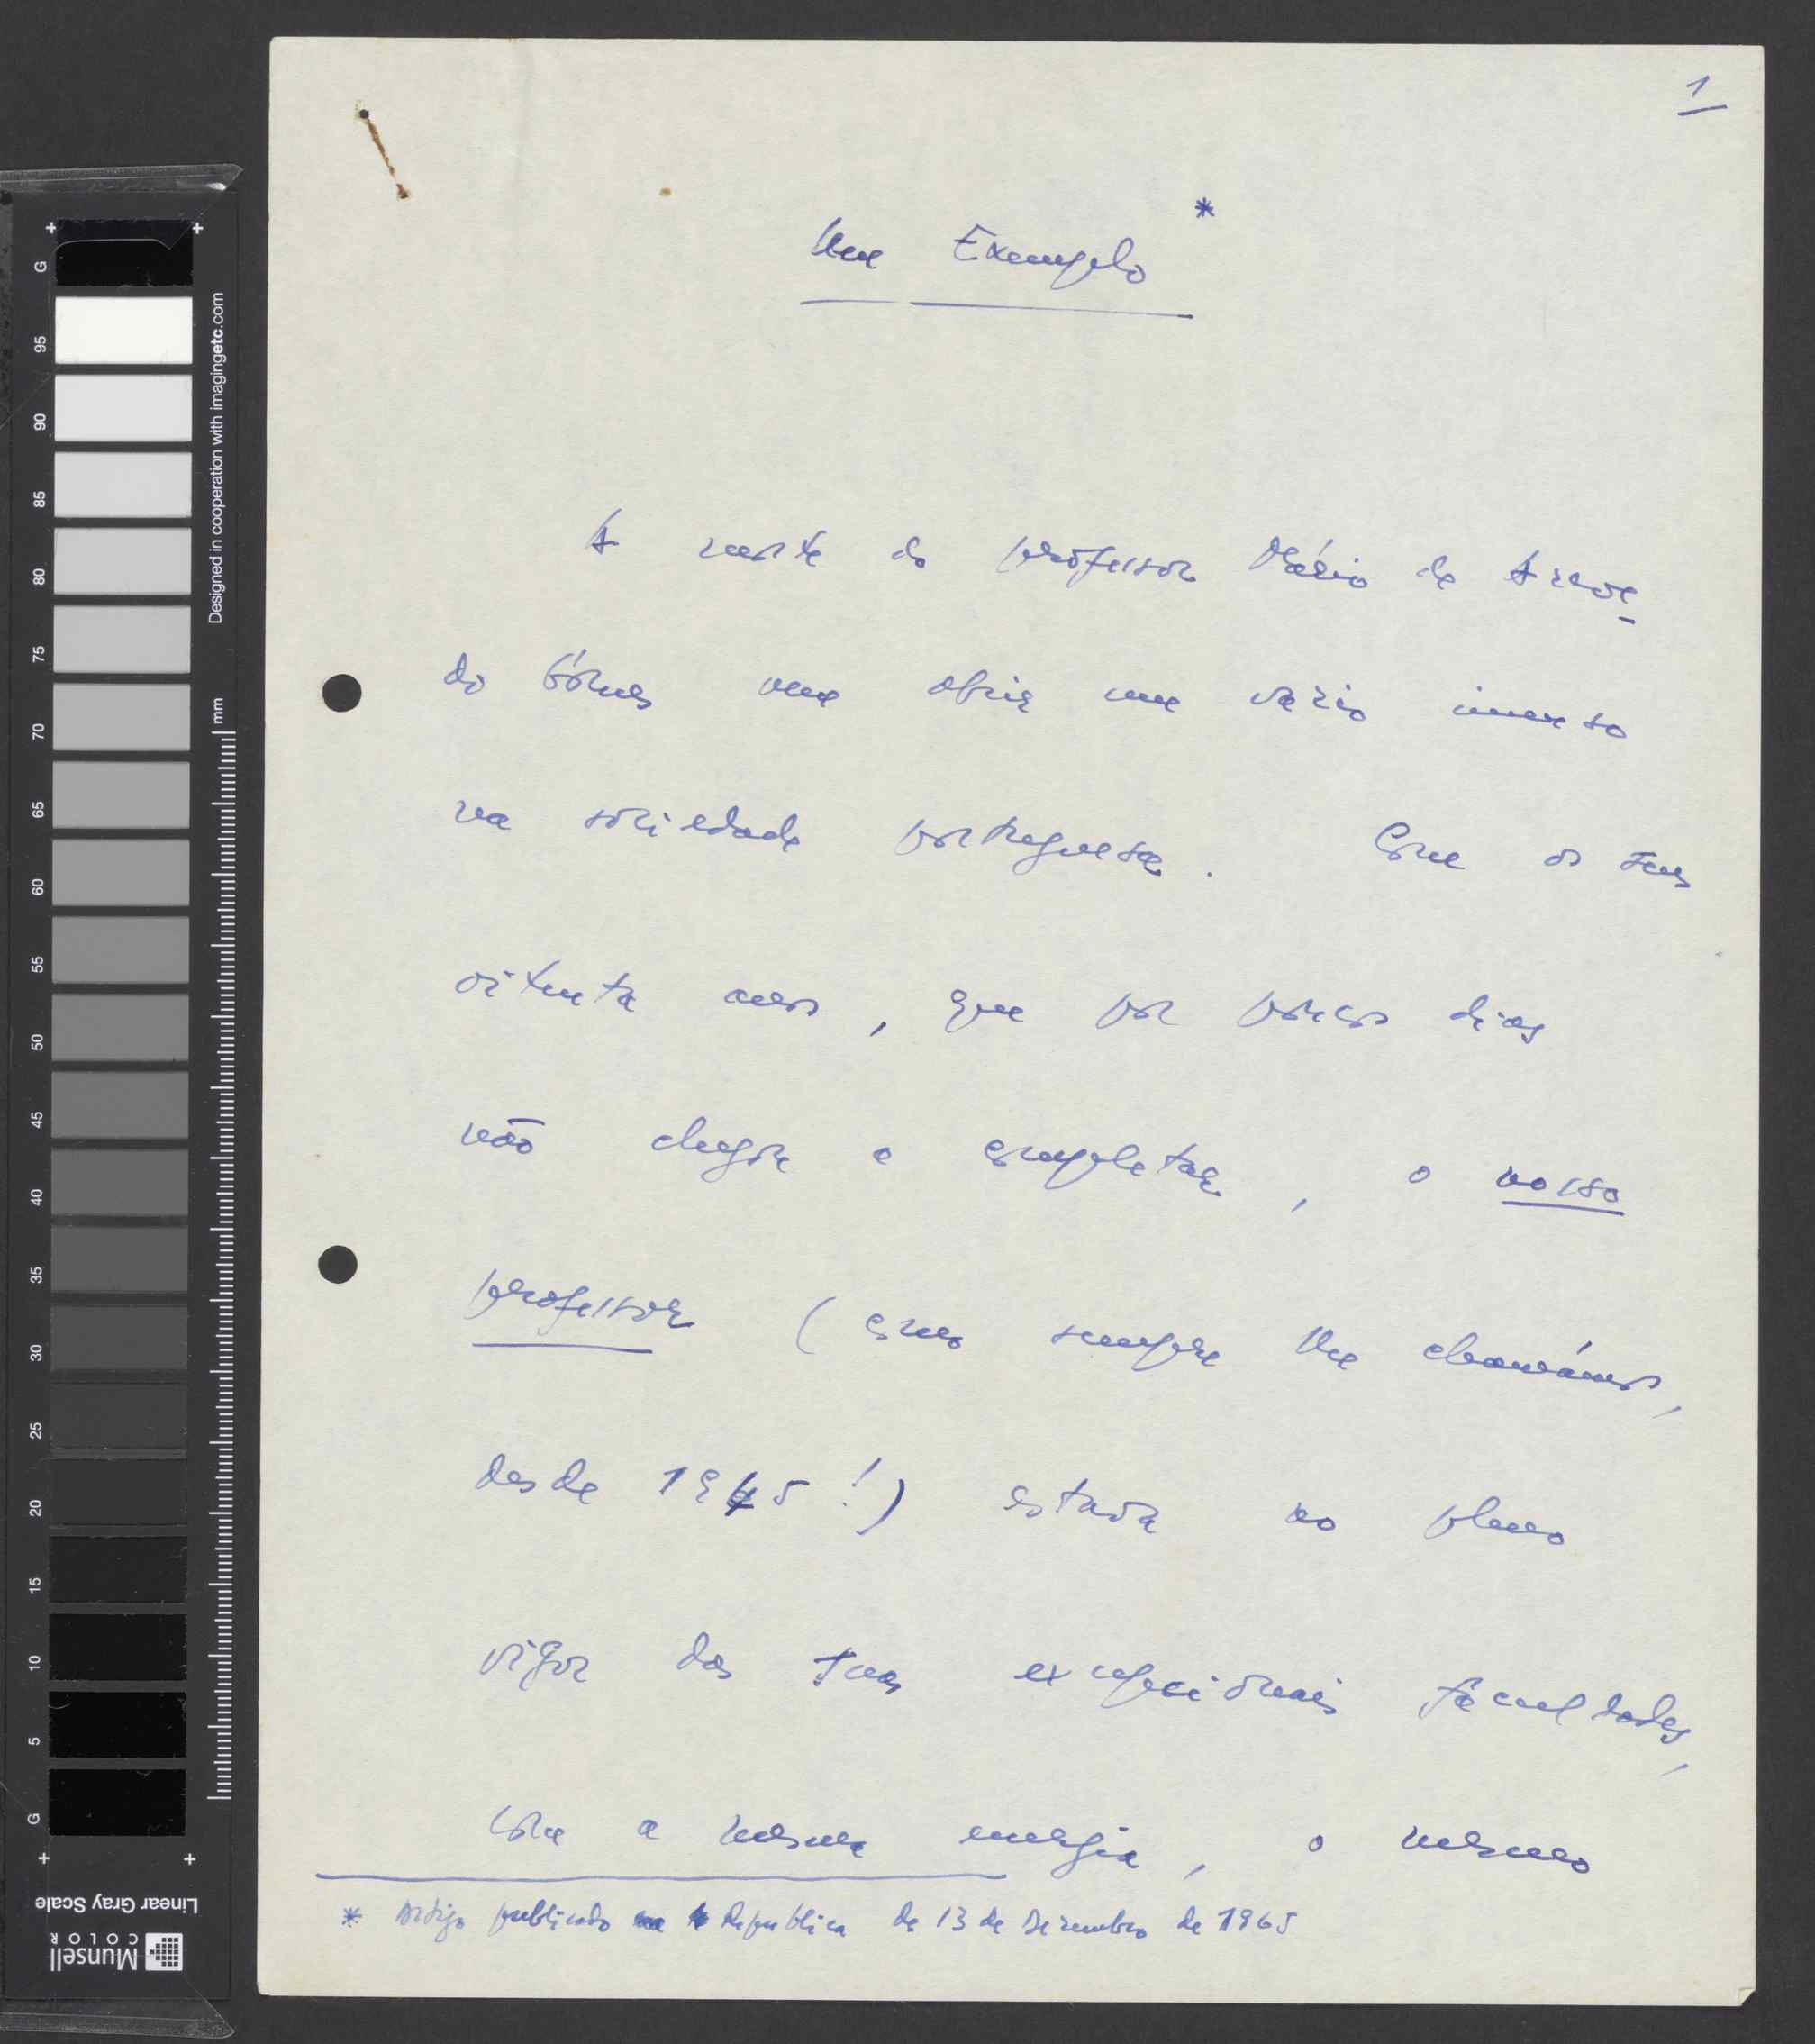 1
Um Exemplo *
A morte do professor Mário de Azeve-
do Gomes vem abrir um vazio imenso
na sociedade portuguesa. Com os seus
oitenta anos, que por poucos dias
não chegou a completar, o nosso
professor (como sempre lhe chamámos,
desde 1945!) estava no pleno
vigor das suas excepcionais faculdades,
com a mesma energia, o mesmo
* Artigo publicado na República de 13 de Dezembro de 1965
G
95
90
85
80
75
70
65
60
55
50
45
40
35
30
25
20
15
10
5
G
Designed in cooperation with imagingetc.com
mm
Linear Gray Scale
Munsell
COLOR